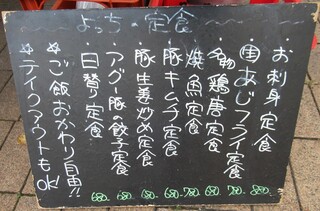 よっちの定食
・お刺身定食
・生あじフライ定食
・名物鶏唐定食
・焼魚定食
・豚キムチ定食
・豚生姜炒め定食
・アグー豚の餃子定食
・日替り定食
☆ご飯おかわり自由!!
☆テイクアウトもOK!
850.
780.
680.
780.
680.
680.
680.
680.